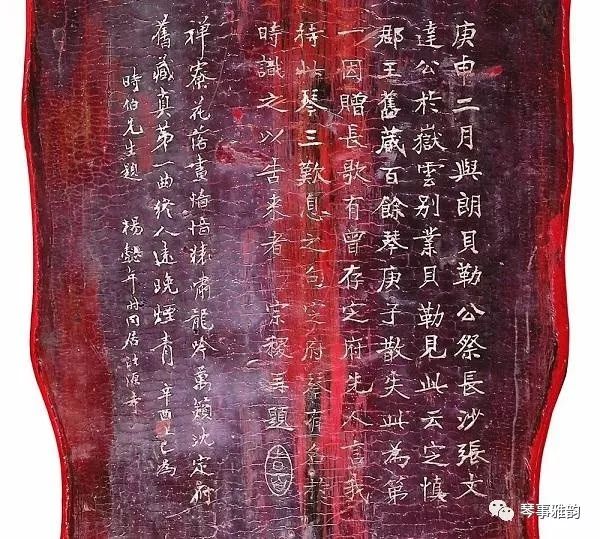 庚申二月與朗貝勒公祭長沙張文
達公於嶽雲別業貝勒見此云定慎
郡王舊藏百餘琴庚子散失此為第
一因贈長歌有曾存定府先人言我
持此琴三歎息之句定府琴有名於
時識之以告来者 宗稷再題
禅寮花落晝愔愔猿嘯龍吟萬籟沈定府
舊藏真第一曲終人遠晚煙青 辛酉上巳為
時伯先生題 楊懿年时同居法源寺
琴事雅韵